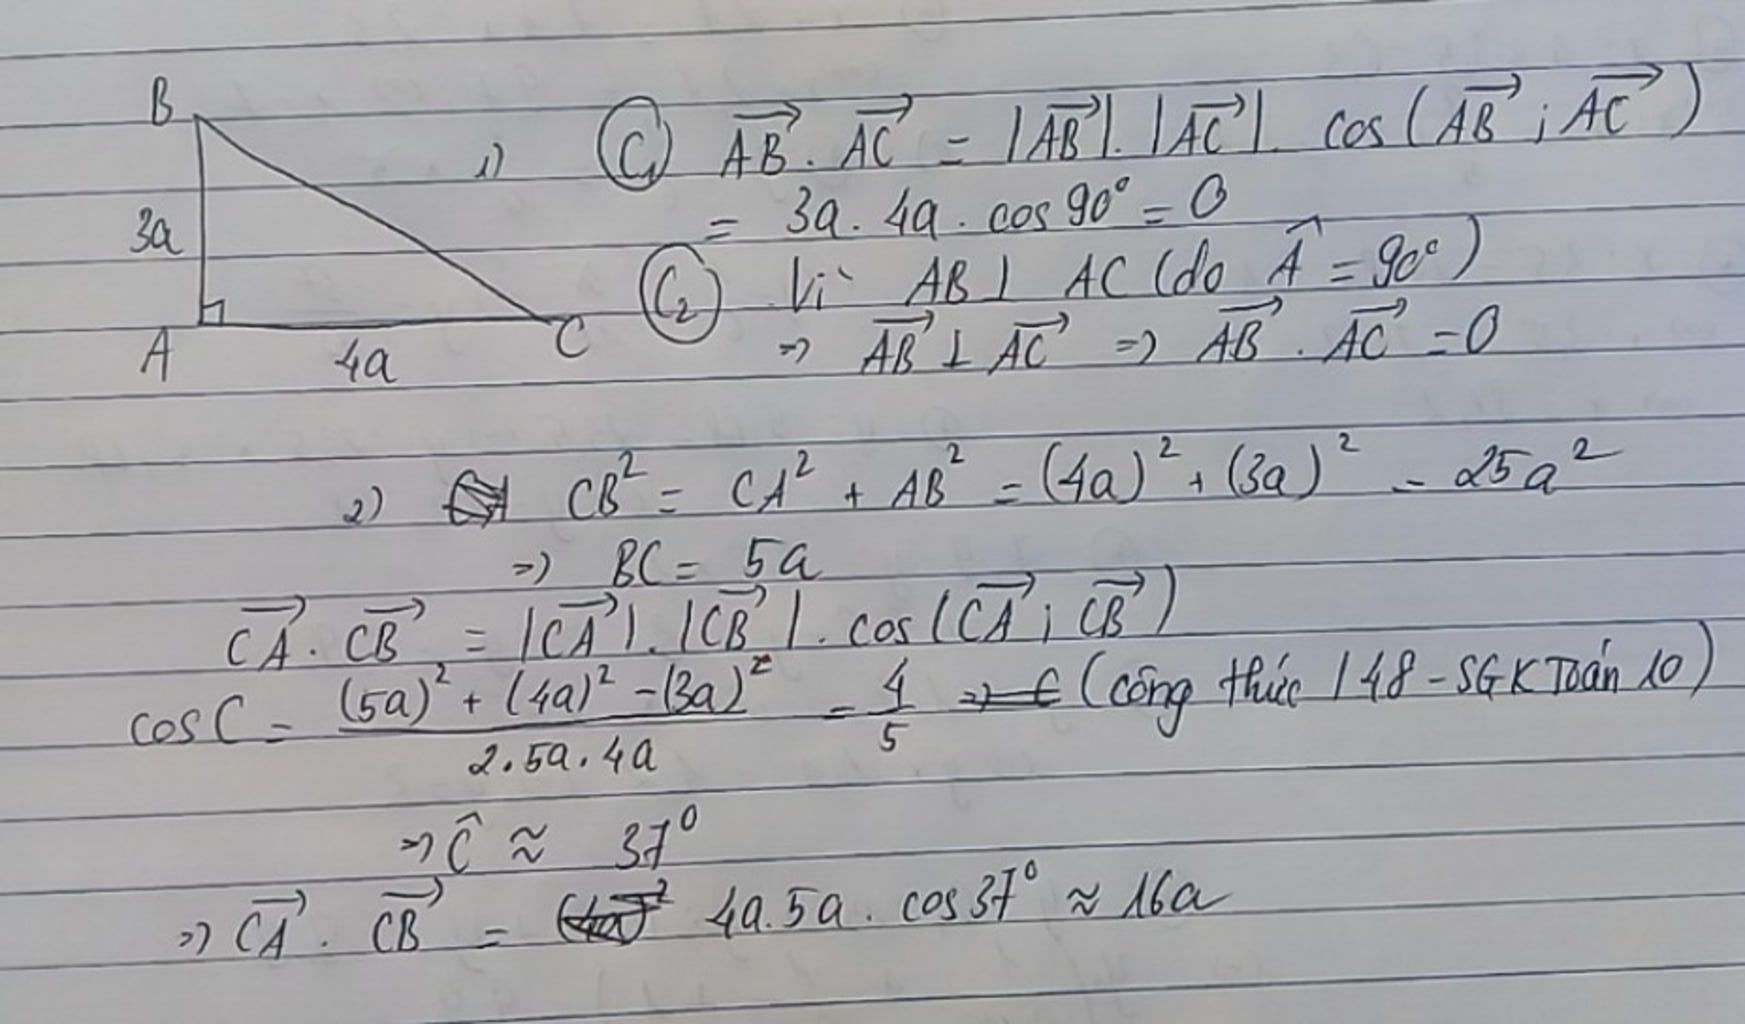 B
3a
A
4a
C
1) C1 $\overrightarrow{AB} . \overrightarrow{AC} = |\overrightarrow{AB}| . |\overrightarrow{AC}| . cos(\overrightarrow{AB} ; \overrightarrow{AC})$
= 3a . 4a . cos 90° = 0
C2 Vì AB ⊥ AC (do $\widehat{A}$ = 90°)
=> $\overrightarrow{AB} ⊥ \overrightarrow{AC}$ => $\overrightarrow{AB} . \overrightarrow{AC}$ = 0
2) CB² = CA² + AB² = (4a)² + (3a)² = 25a²
=> BC = 5a
$\overrightarrow{CA} . \overrightarrow{CB} = |\overrightarrow{CA}| . |\overrightarrow{CB}| . cos(\overrightarrow{CA} ; \overrightarrow{CB})$
cos C = $\frac{(5a)^2 + (4a)^2 - (3a)^2}{2.5a.4a} = \frac{4}{5}$ (công thức /48 - SGK Toán 10)
=> $\widehat{C}$ ≈ 37°
=> $\overrightarrow{CA} . \overrightarrow{CB}$ = 4a . 5a . cos 37° ≈ 16a